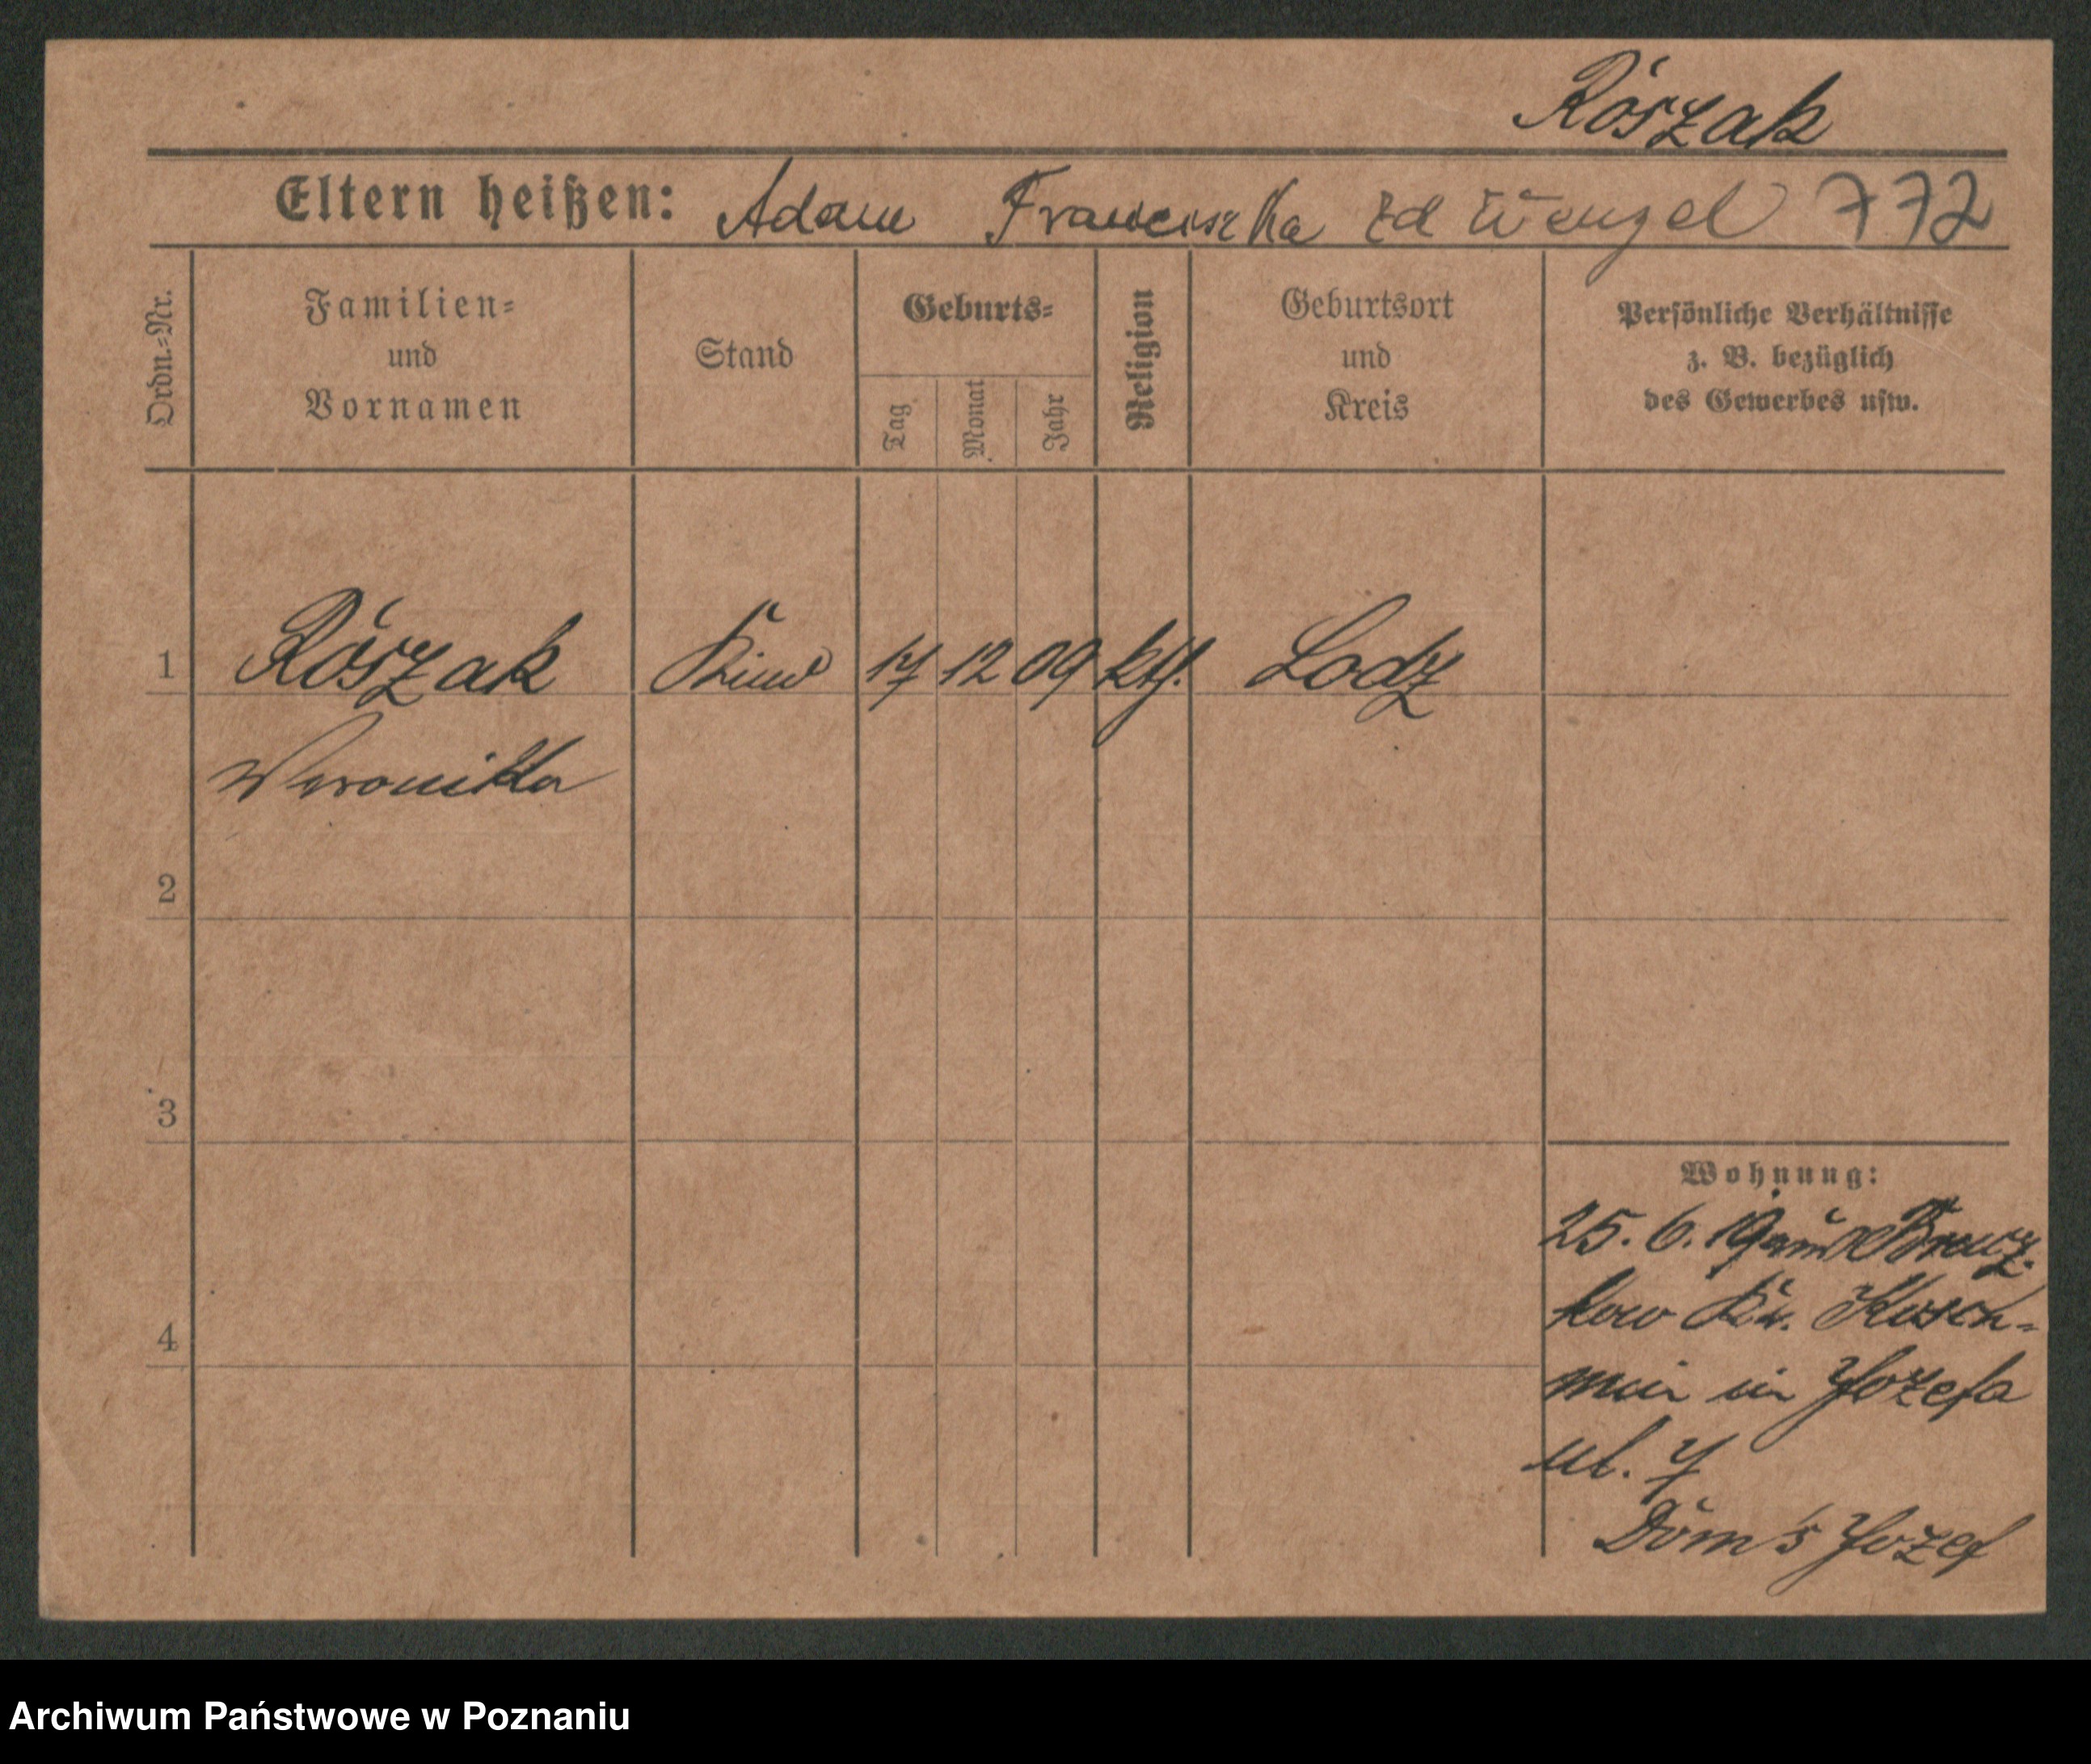 Rószak
Eltern heißen: Adam Franciszka zd Wenzel 772
Ordn.-Nr.
Familien- und Vornamen
Stand
Geburts-
Tag
Monat
Jahr
Religion
Geburtsort und Kreis
Persönliche Verhältnisse
z. B. bezüglich
des Gewerbes usw.
1 Rószak Kind 17 12 09 kth. Lodz
Weronika
2
3
4
Wohnung:
25. 6. 19
kow Kr. Kosch-
min in Jozefa
ul. 7
Jozef
Archiwum Państwowe w Poznaniu